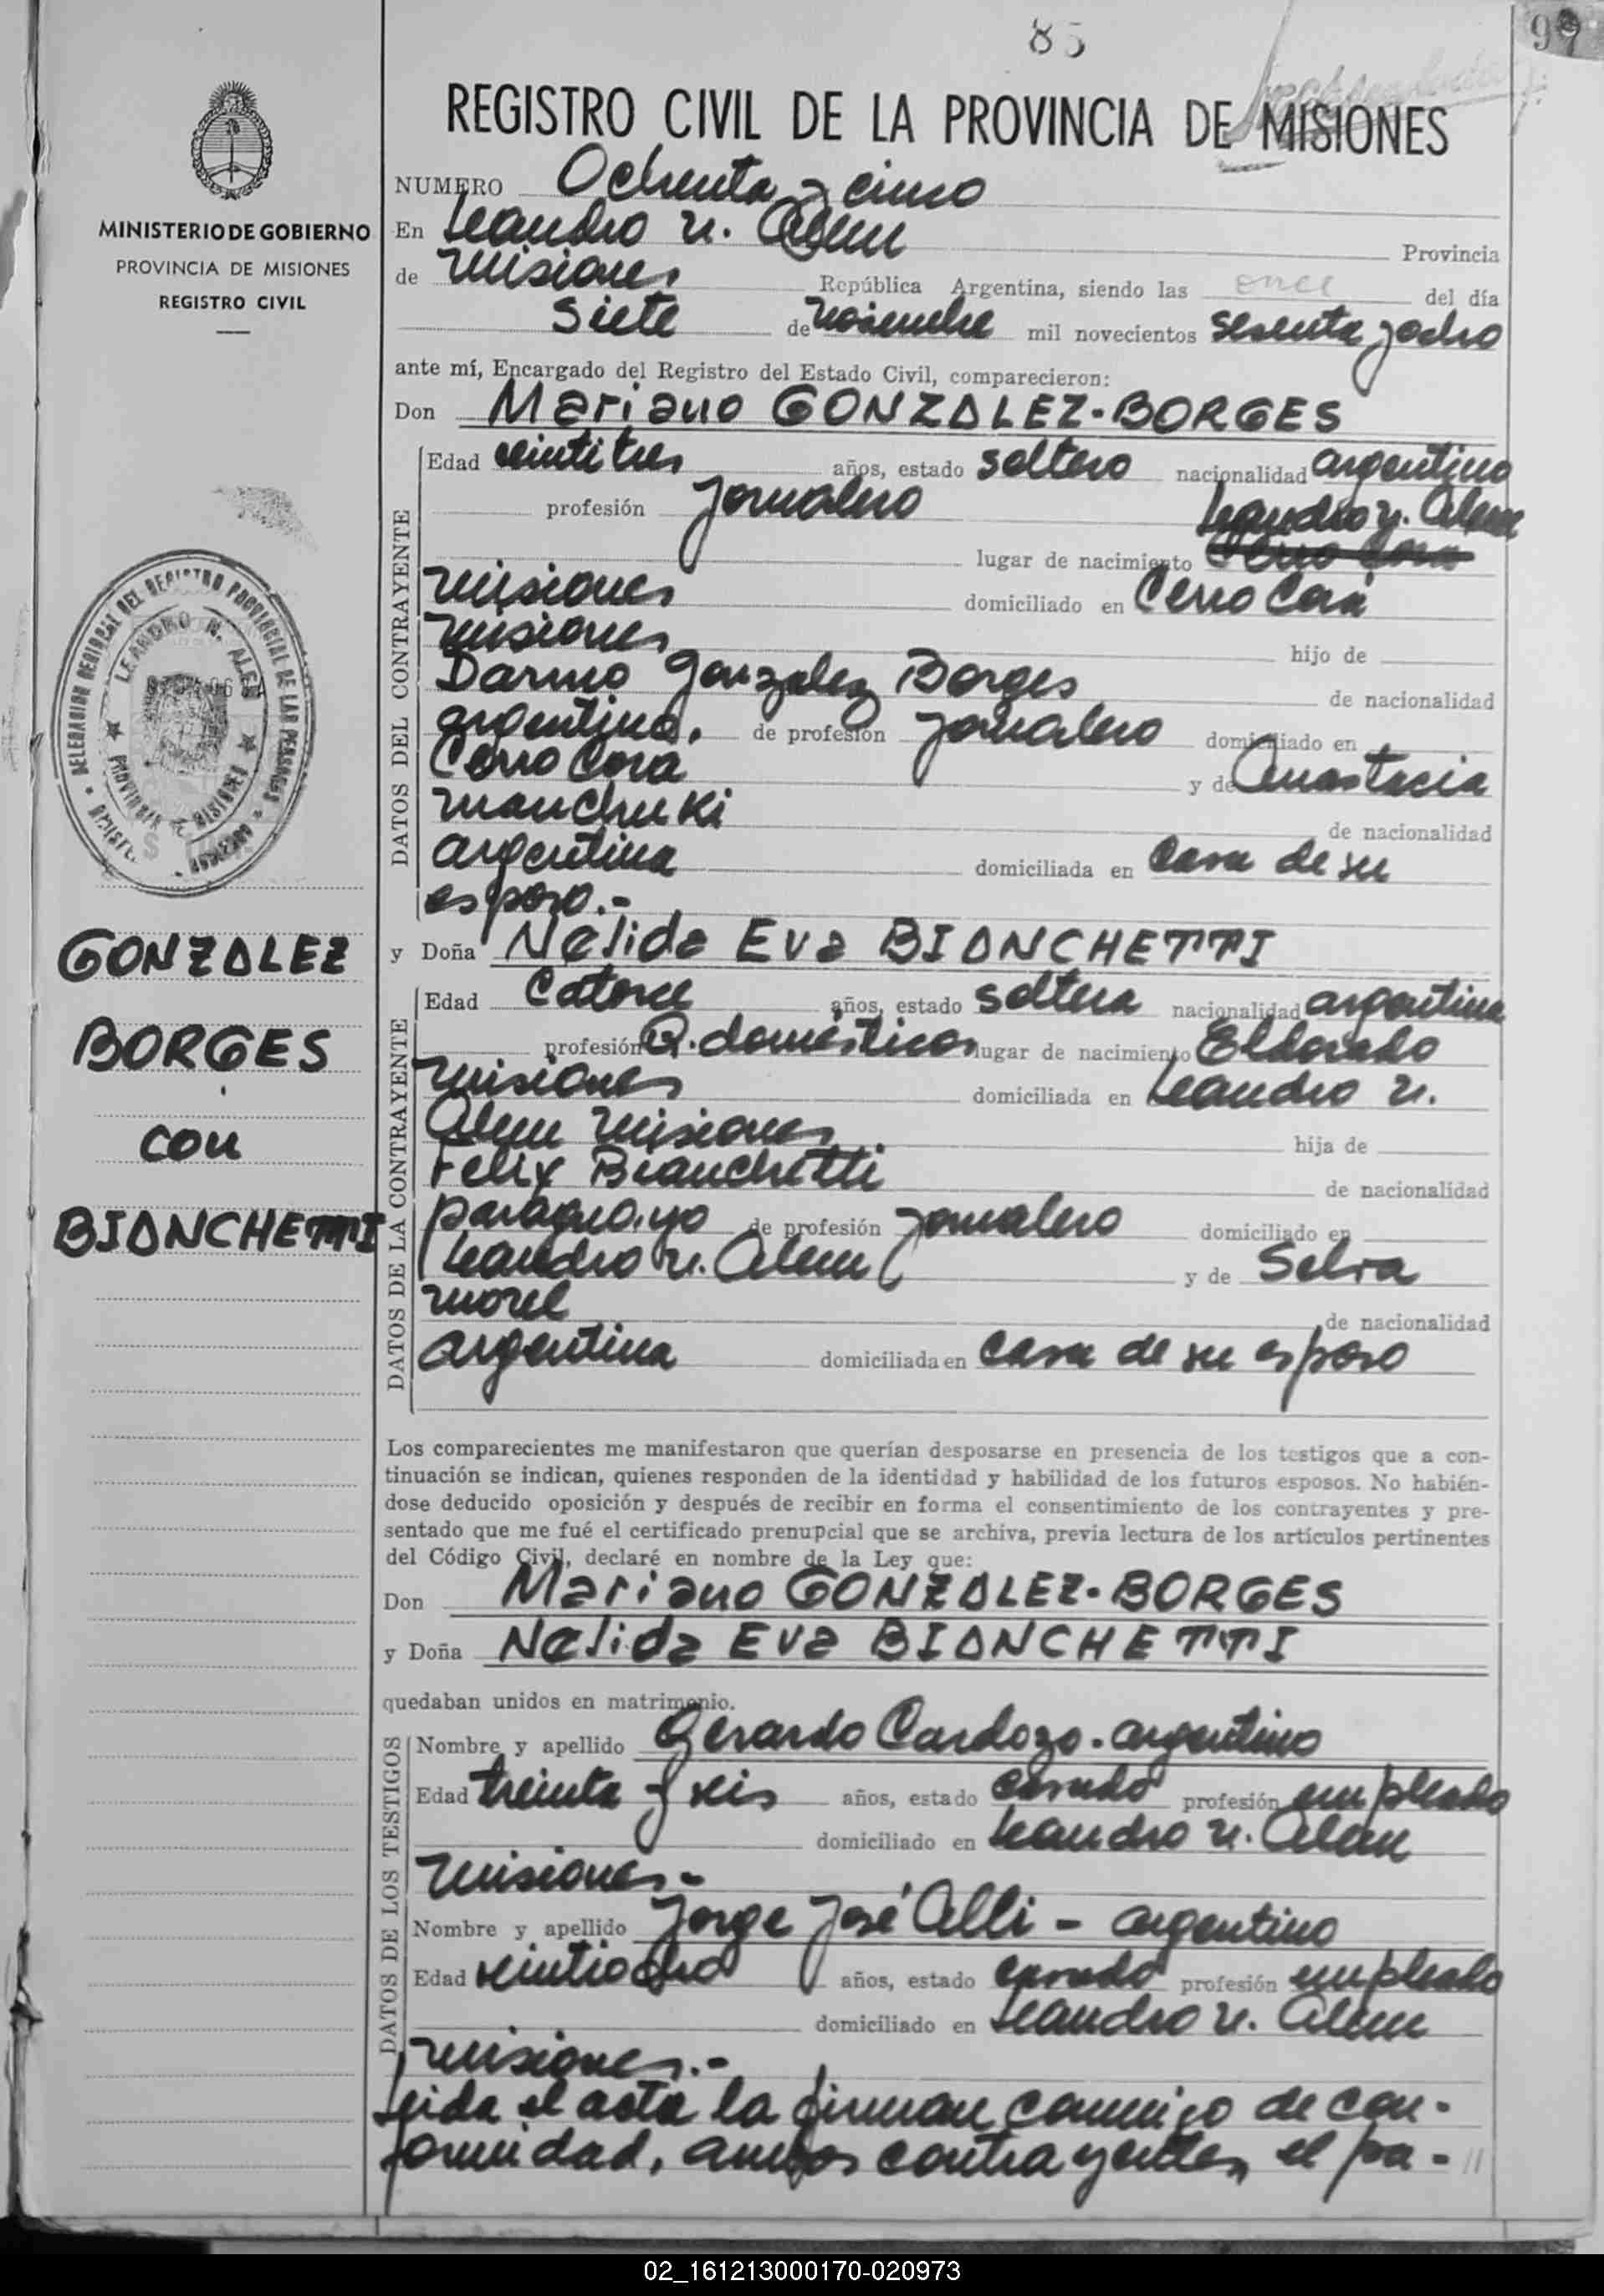 85
99
REGISTRO CIVIL DE LA PROVINCIA DE MISIONES
MINISTERIO DE GOBIERNO
PROVINCIA DE MISIONES
REGISTRO CIVIL
NUMERO Ochenta y cinco
En Leandro N. Alem Provincia
de Misiones República Argentina, siendo las once del día
Siete de Noviembre mil novecientos sesenta y ocho
ante mí, Encargado del Registro del Estado Civil, comparecieron:
Don Mariano GONZALEZ-BORGES
DATOS DEL CONTRAYENTE
Edad veintitres años, estado soltero nacionalidad argentino
profesión Jornalero Leandro N. Alem
lugar de nacimiento
Misiones domiciliado en Cerro Corá
Misiones hijo de
Darmo Gonzalez Borges de nacionalidad
argentino. de profesión Jornalero domiciliado en
Cerro Cora y de Anastacia
Manchuki de nacionalidad
argentina domiciliada en Casa de su
esposo.-
y Doña Nelida Eva BIANCHETTI
DATOS DE LA CONTRAYENTE
Edad Catorce años, estado soltera nacionalidad argentina
profesión Q. domésticos lugar de nacimiento Eldorado
Misiones domiciliada en Leandro N.
Alem Misiones hija de
Felix Bianchetti de nacionalidad
paraguayo de profesión Jornalero domiciliado en
Leandro N. Alem y de Selva
Morel de nacionalidad
argentina domiciliada en Casa de su esposo
GONZALEZ
BORGES
con
BIANCHETTI
Los comparecientes me manifestaron que querían desposarse en presencia de los testigos que a con-
tinuación se indican, quienes responden de la identidad y habilidad de los futuros esposos. No habién-
dose deducido oposición y después de recibir en forma el consentimiento de los contrayentes y pre-
sentado que me fué el certificado prenupcial que se archiva, previa lectura de los artículos pertinentes
del Código Civil, declaré en nombre de la Ley que:
Don Mariano GONZALEZ-BORGES
y Doña Nelida Eva BIANCHETTI
quedaban unidos en matrimonio.
DATOS DE LOS TESTIGOS
Nombre y apellido Gerardo Cardozo - argentino
Edad treinta y seis años, estado casado profesión empleado
domiciliado en Leandro N. Alem
Misiones-
Nombre y apellido Jorge José Alli - argentino
Edad veintiocho años, estado casado profesión empleado
domiciliado en Leandro N. Alem
Misiones.-
Leida el acta la firman conmigo de con-
formidad, ambos contrayentes, el pa- //
02_161213000170-020973